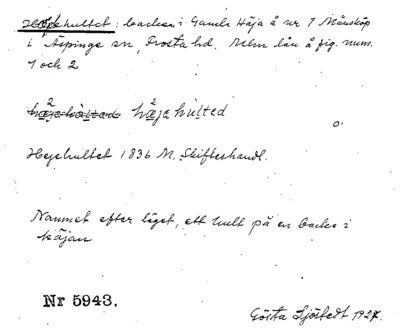 Häjehultet: backen i Gamla Häja å nr. 1 Månstorp
i Äspinge sn, Frosta hd. Mlm län å fig. num.
1 och 2
hæjahùlted
Hejehultet 1836 M. Skifteshandl.
Namnet efter läget, ett hult på en backe i
häjan
Nr 5943.
Gösta Sjöstedt 1927.